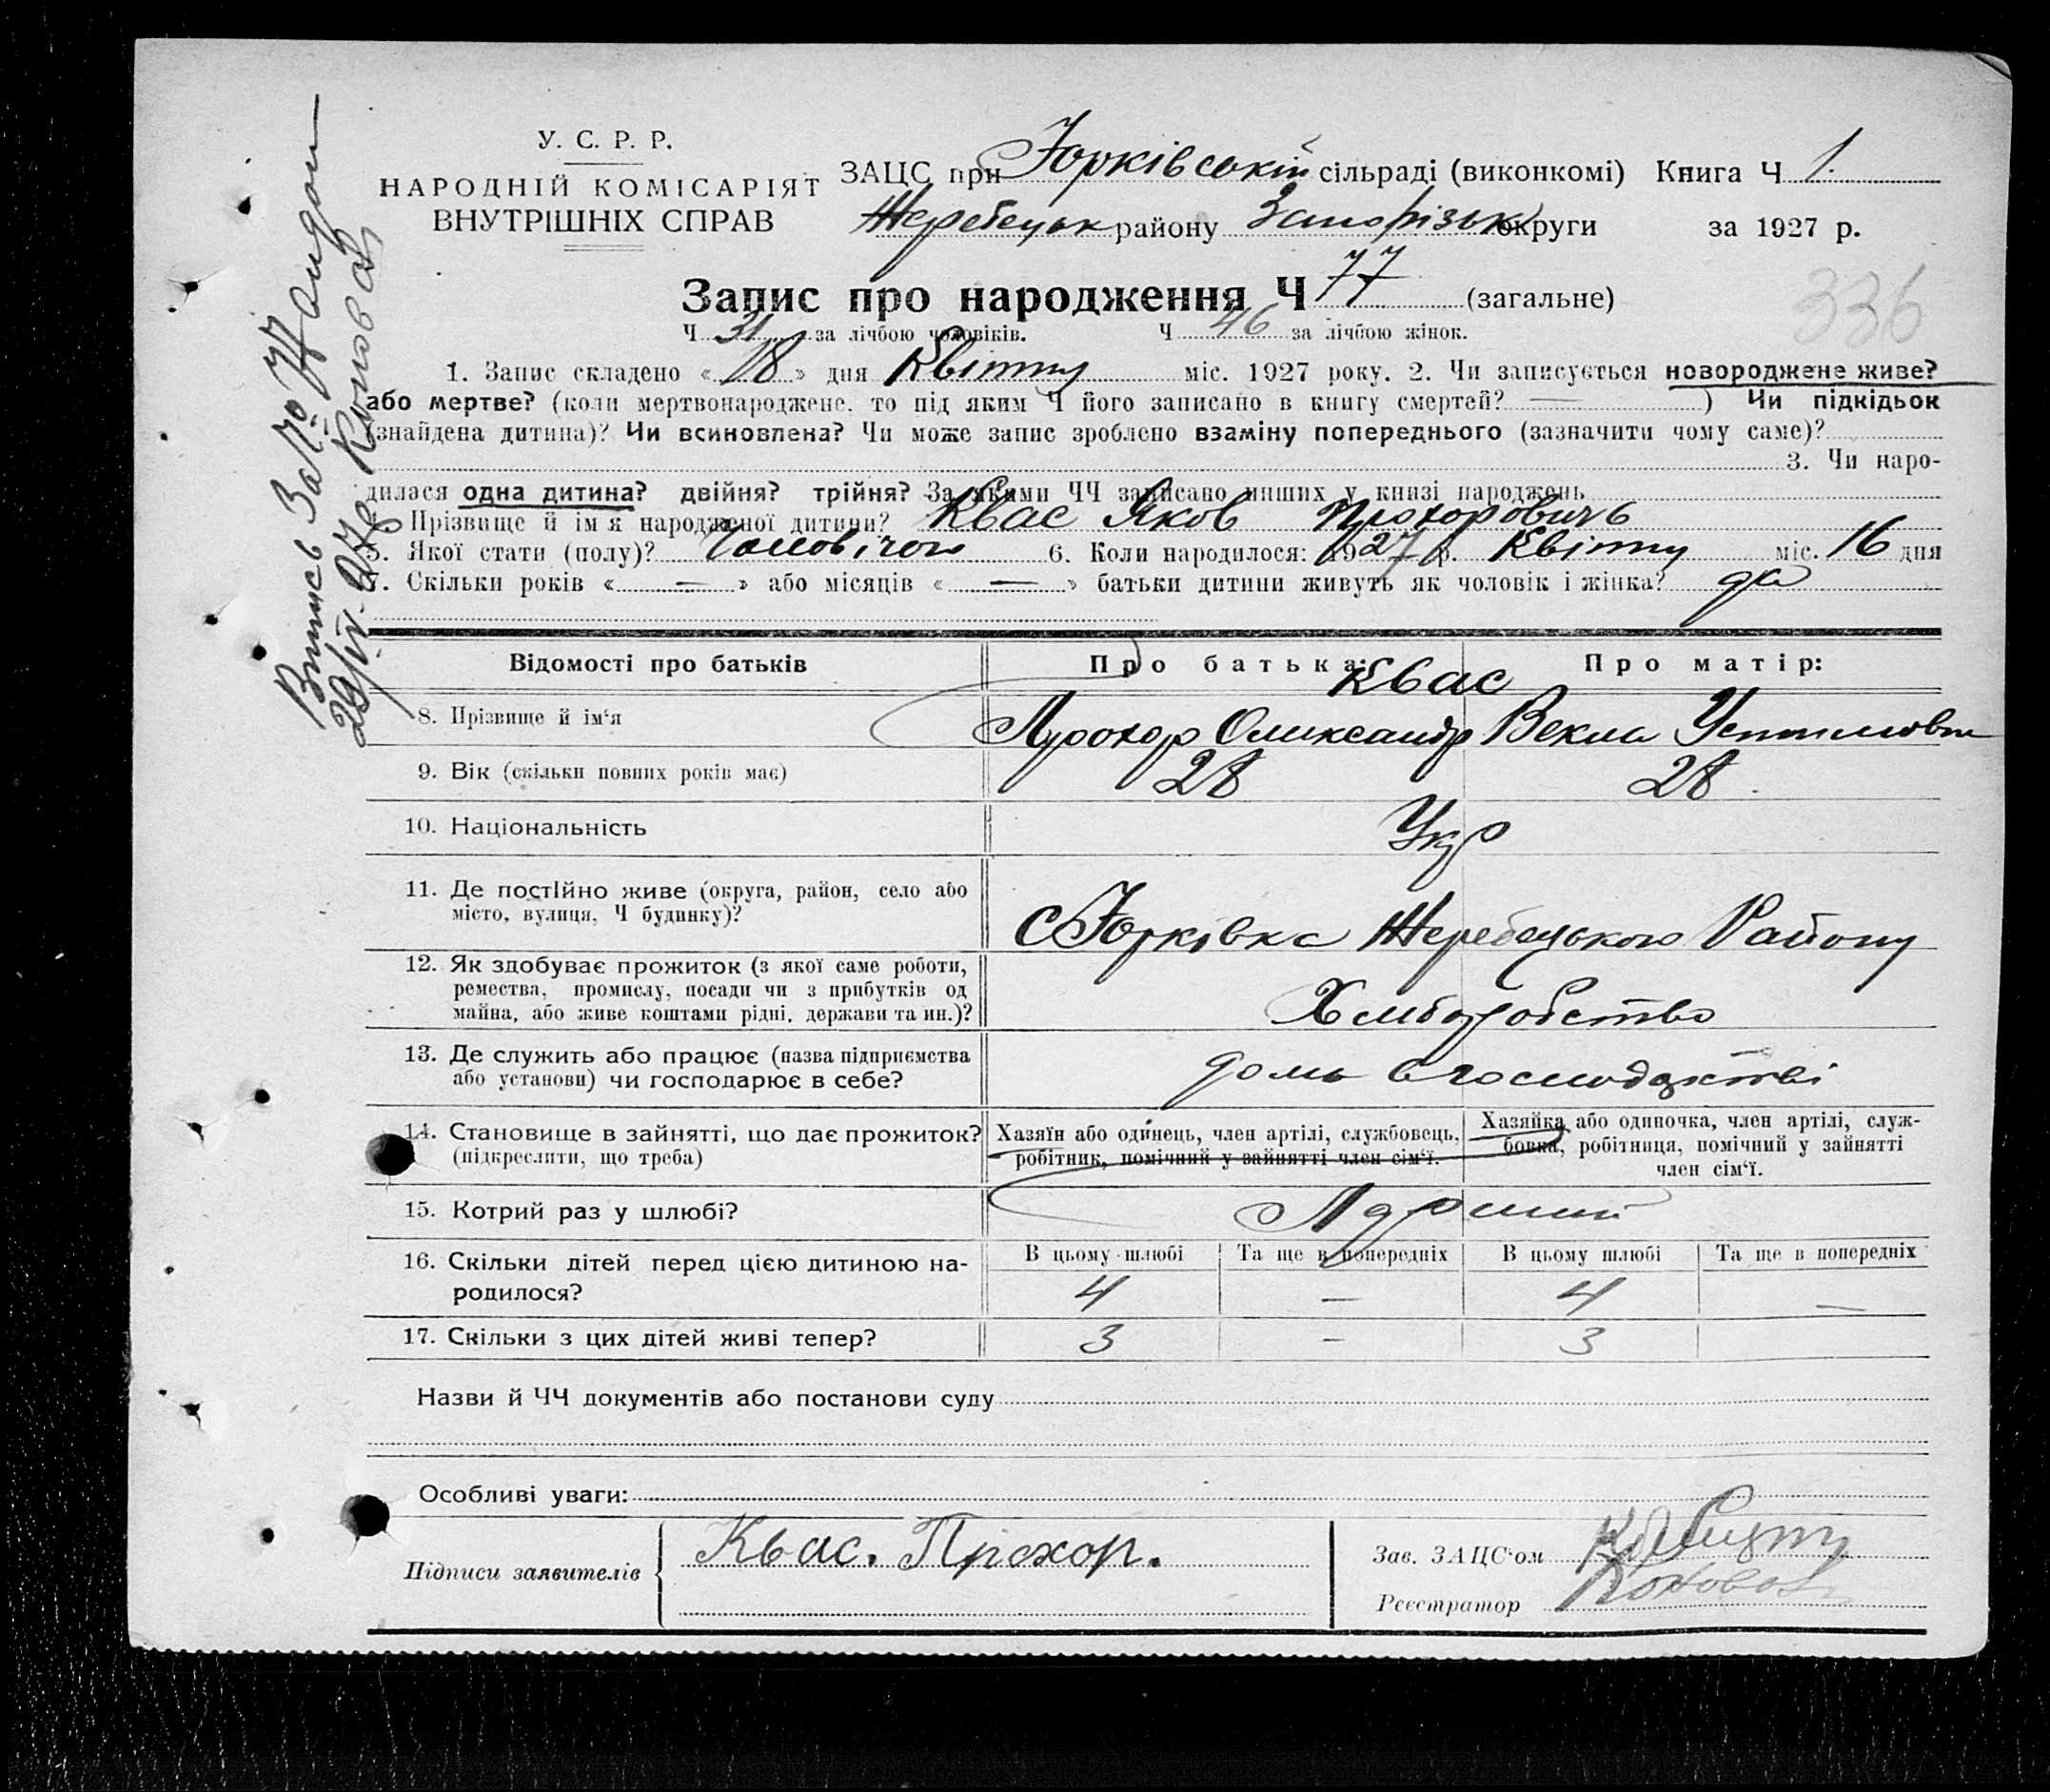 У. С. Р. Р.
НАРОДНІЙ КОМІСАРІЯТ
ВНУТРІШНІХ СПРАВ
ЗАЦС при Юрківській сільраді (виконкомі) Книга Ч 1.
Жеребецьк району Запорізьк округи за 1927 р.
336
Запис про народження Ч 77 (загальне)
Ч 31 за лічбою чоловіків. Ч 46 за лічбою жінок.
1. Запис складено « 18 » дня Квітту міс. 1927 року. 2. Чи записується новороджене живе?
або мертве? (коли мертвонароджене, то під яким Ч його записано в книгу смертей? — ) Чи підкідьок
(знайдена дитина)? Чи всиновлена? Чи може запис зроблено взаміну попереднього (зазначити чому саме)?
3. Чи наро-
дилася одна дитина? двійня? трійня? За якими ЧЧ записано инших у книзі народжень
4. Прізвище й ім'я народженої дитини? Квас Яков Прохоровичь
5. Якої стати (полу)? Чоловічої 6. Коли народилося: 1927 р. Квітту міс. 16 дня
7. Скільки років « — » або місяців « — » батьки дитини живуть як чоловік і жінка? да
Відомості про батьків Про батька: Про матір:
Квас
8. Прізвище й ім'я Прохор Олександр Векла Устимовна
9. Вік (скільки повних років має) 28 28
10. Національність Укр
11. Де постійно живе (округа, район, село або
місто, вулиця, Ч будинку)?
С Юрківка Жеребецького Району
12. Як здобуває прожиток (з якої саме роботи,
ремества, промислу, посади чи з прибутків од
майна, або живе коштами рідні, держави та ин.)?
Хлиборобство
13. Де служить або працює (назва підприємства
або установи) чи господарює в себе?
дома в господарстві
14. Становище в зайнятті, що дає прожиток?
(підкреслити, що треба)
Хазяїн або одинець, член артілі, службовець,
робітник, помічний у зайнятті член сім'ї.
Хазяйка або одиночка, член артілі, служ-
бовка, робітниця, помічний у зайнятті
член сім'ї.
15. Котрий раз у шлюбі?
16. Скільки дітей перед цією дитиною на-
родилося?
В цьому шлюбі Та ще в попередніх В цьому шлюбі Та ще в попередніх
4 — 4 —
17. Скільки з цих дітей живі тепер? 3 — 3
Назви й ЧЧ документів або постанови суду
Особливі уваги:
Підписи заявителів Квас. Прохор.
Зав. ЗАЦС'ом
Реєстратор Коновал